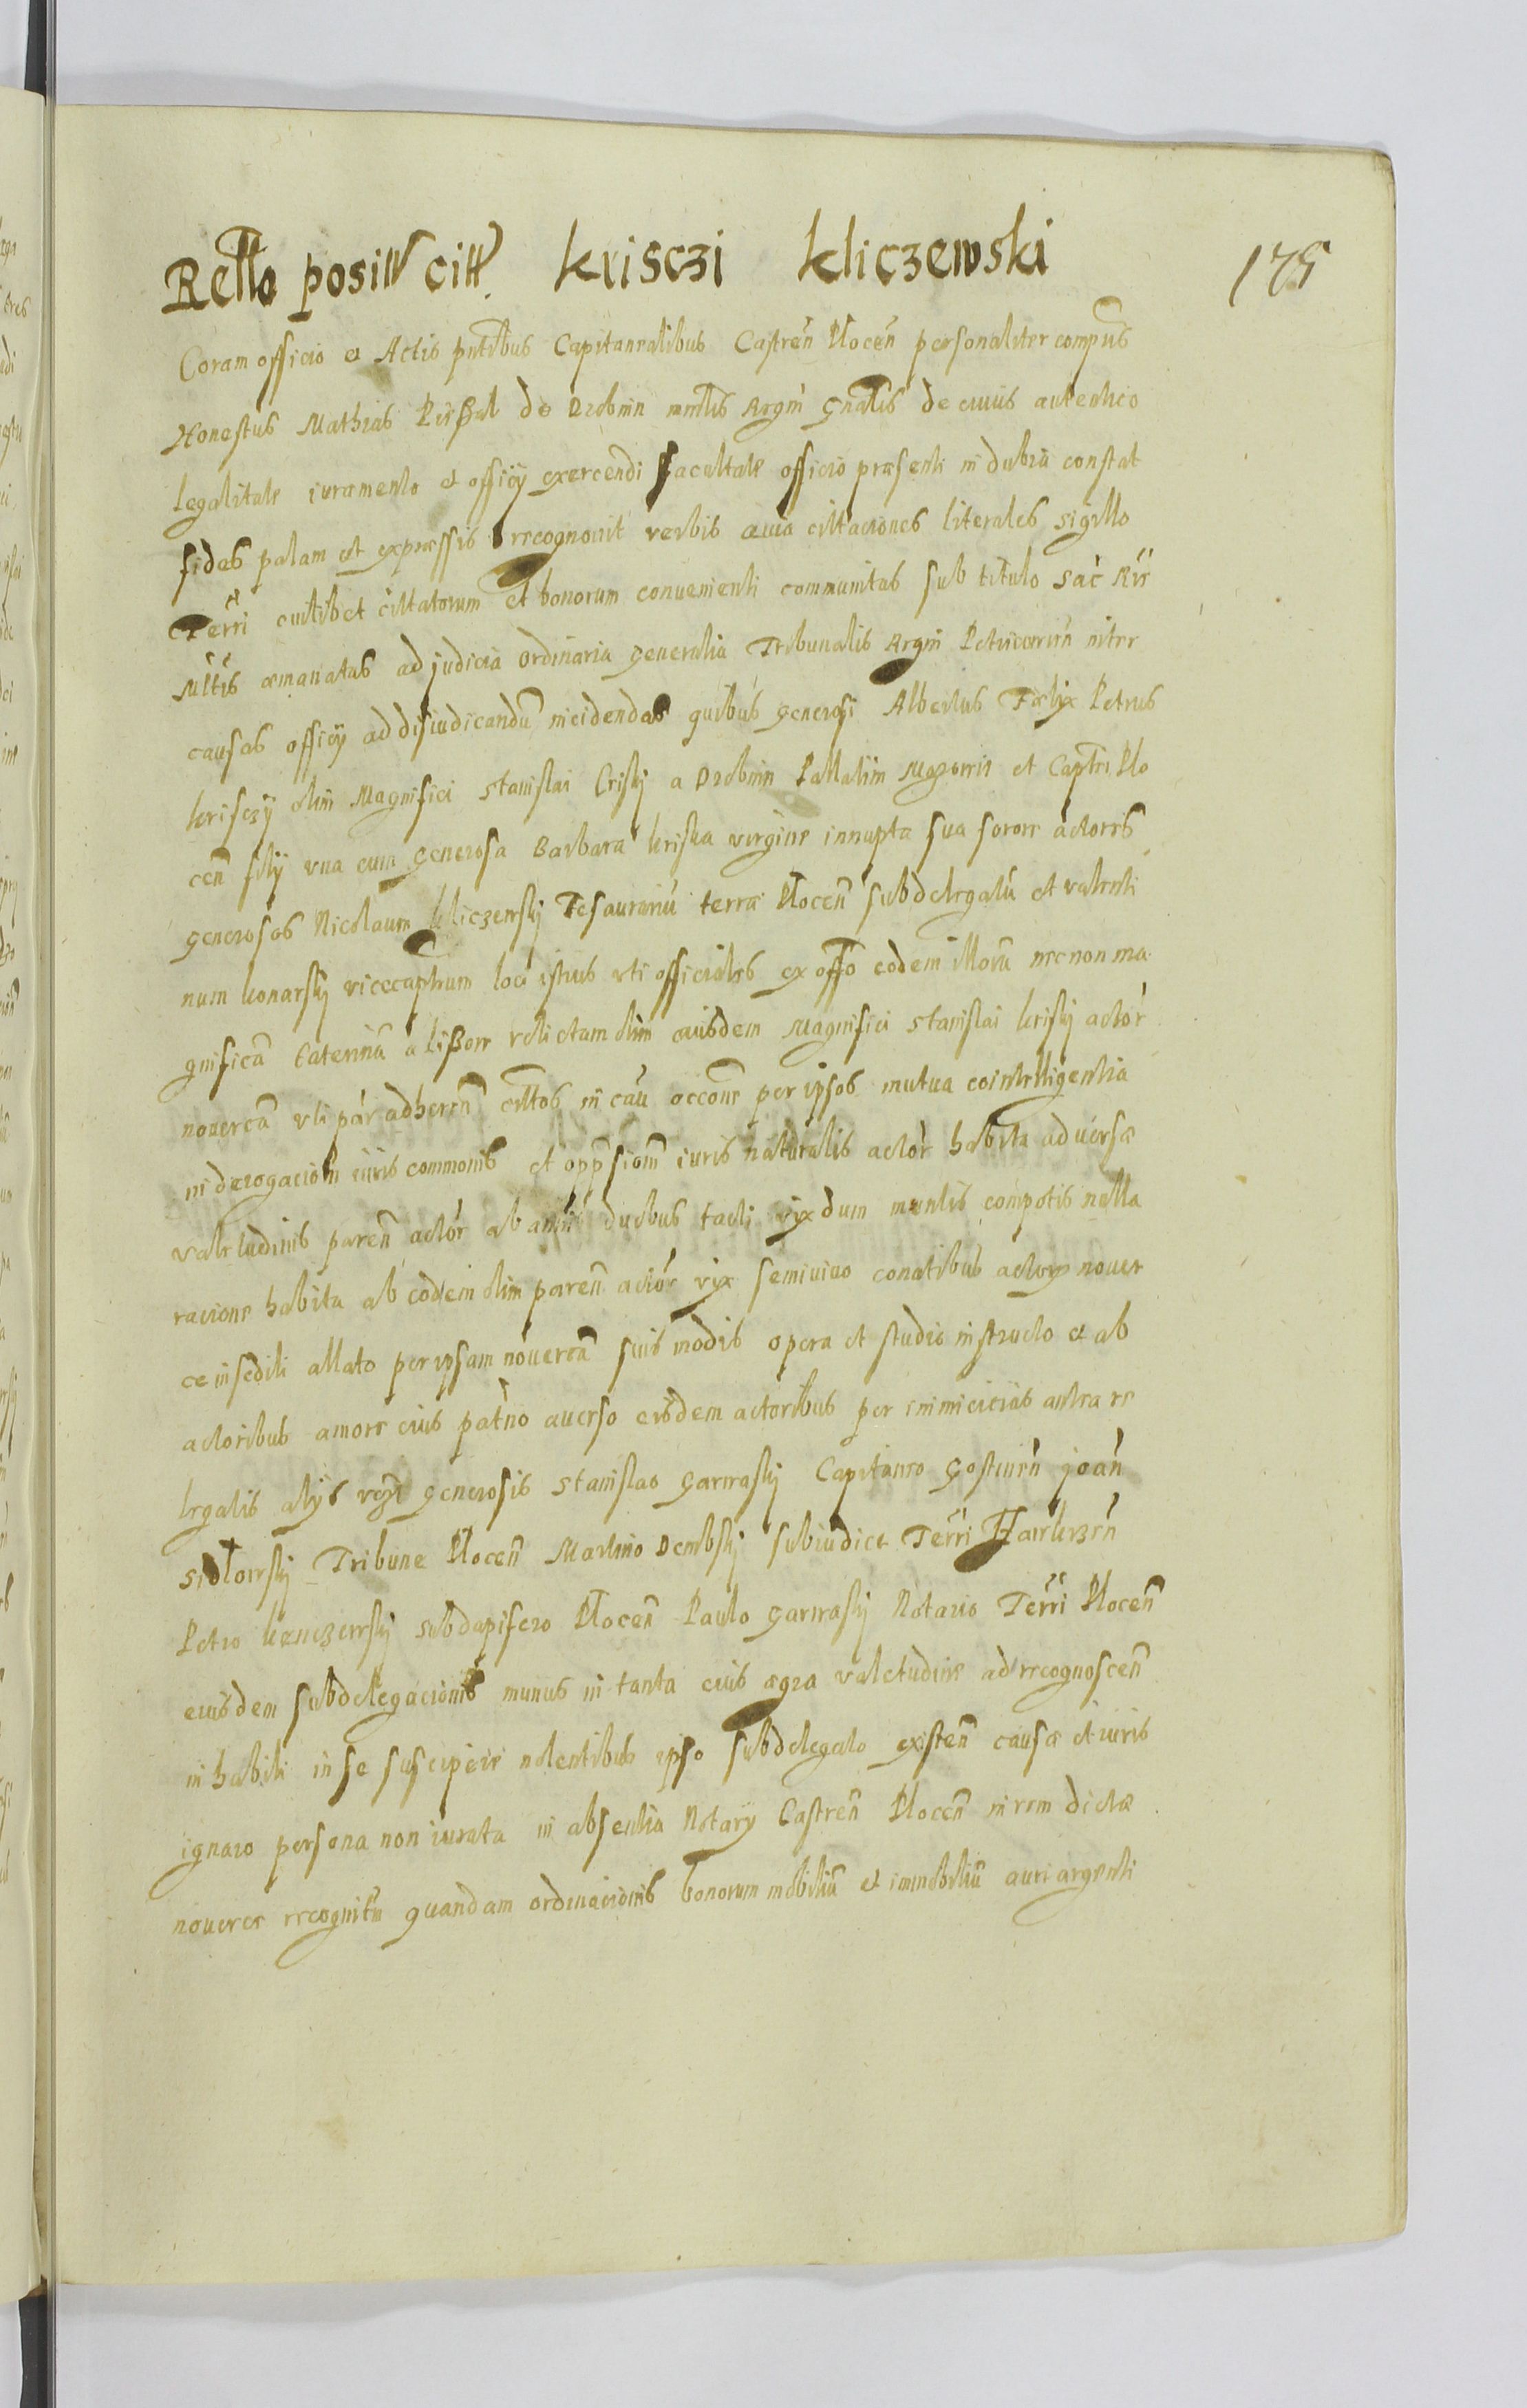 Rello posill cill. krisczi kliczewski
175
Coram officio et Actis pntibus Capitanealibus Castren Plocen personaliter compns
Honestus Mathias de Drobnin mnlis Regni gnalis de cuius autentico
legalitate iuramento et officij exercendi facultate officio præsenti in dubia constat
fides palam et expræssis recognouit verbis quia cittaciones literales sigillo
Terri cuilibet cittatorum et bonorum conuenienti communitas sub titulo Sac
Mttis æmanatas ad judicia ordinaria generalia Tribunalis Regni Petricouien inter
causas officij ad disiudicandu incidendas quibus generosi Albertus Fælix Petrus
krisczij olim Magnifici Stanislai Crisky a Drobnin Pallatini Mazouie et Captri Plo
cen filij vna cum generosa Barbara kriska virgine innupta sua sorore actores
generosos Nicolaum kliczewsky Tesaurariu terræ Plocen subdelegatu et valenti
num konarsky vicecaptneum loci istius vti officiales ex offo eodem illoru nec non ma
gnifica Caterina a relictam olim eiusdem Magnifici Stanislai krisky actor
nouerca vti par adheren cittos in cau accone per ipsos mutua cointelligentia
in derogacionem iuris commonis et oppsionem iuris naturalis actor habita aduersæ
valetudinis paren actor ab annis duobus tacti vix dum mentis compotis nulla
racione habita ab eodem olim paren actor vix semiuiuo conatibus actorum nouer
cæ in sedili allato per ipsam nouerca suis modis opera et studio instructo et ab
actoribus amore eius patno auerso eisdem actoribus per inimicicias antea re
legatis alijs vero generosis Stanislao garwasky Capitaneo gostinen joan
Tribune Plocen Martino Dembsky subiudice Terri
Petro subdapifero Plocen Paulo garwasky Notario Terri Plocen
eiusdem subdelegacionis munus in tanta eius ægra valetudine ad recognoscen
inhabili in se suscipere nolentibus ipso subdelegato existen causæ et iuris
ignaro persona non iurata in absentia Notarij Castren Plocen in rem dictæ
nouercæ recognitu quandam ordinacionis bonorum mobiliu et immobiliu auri argenti